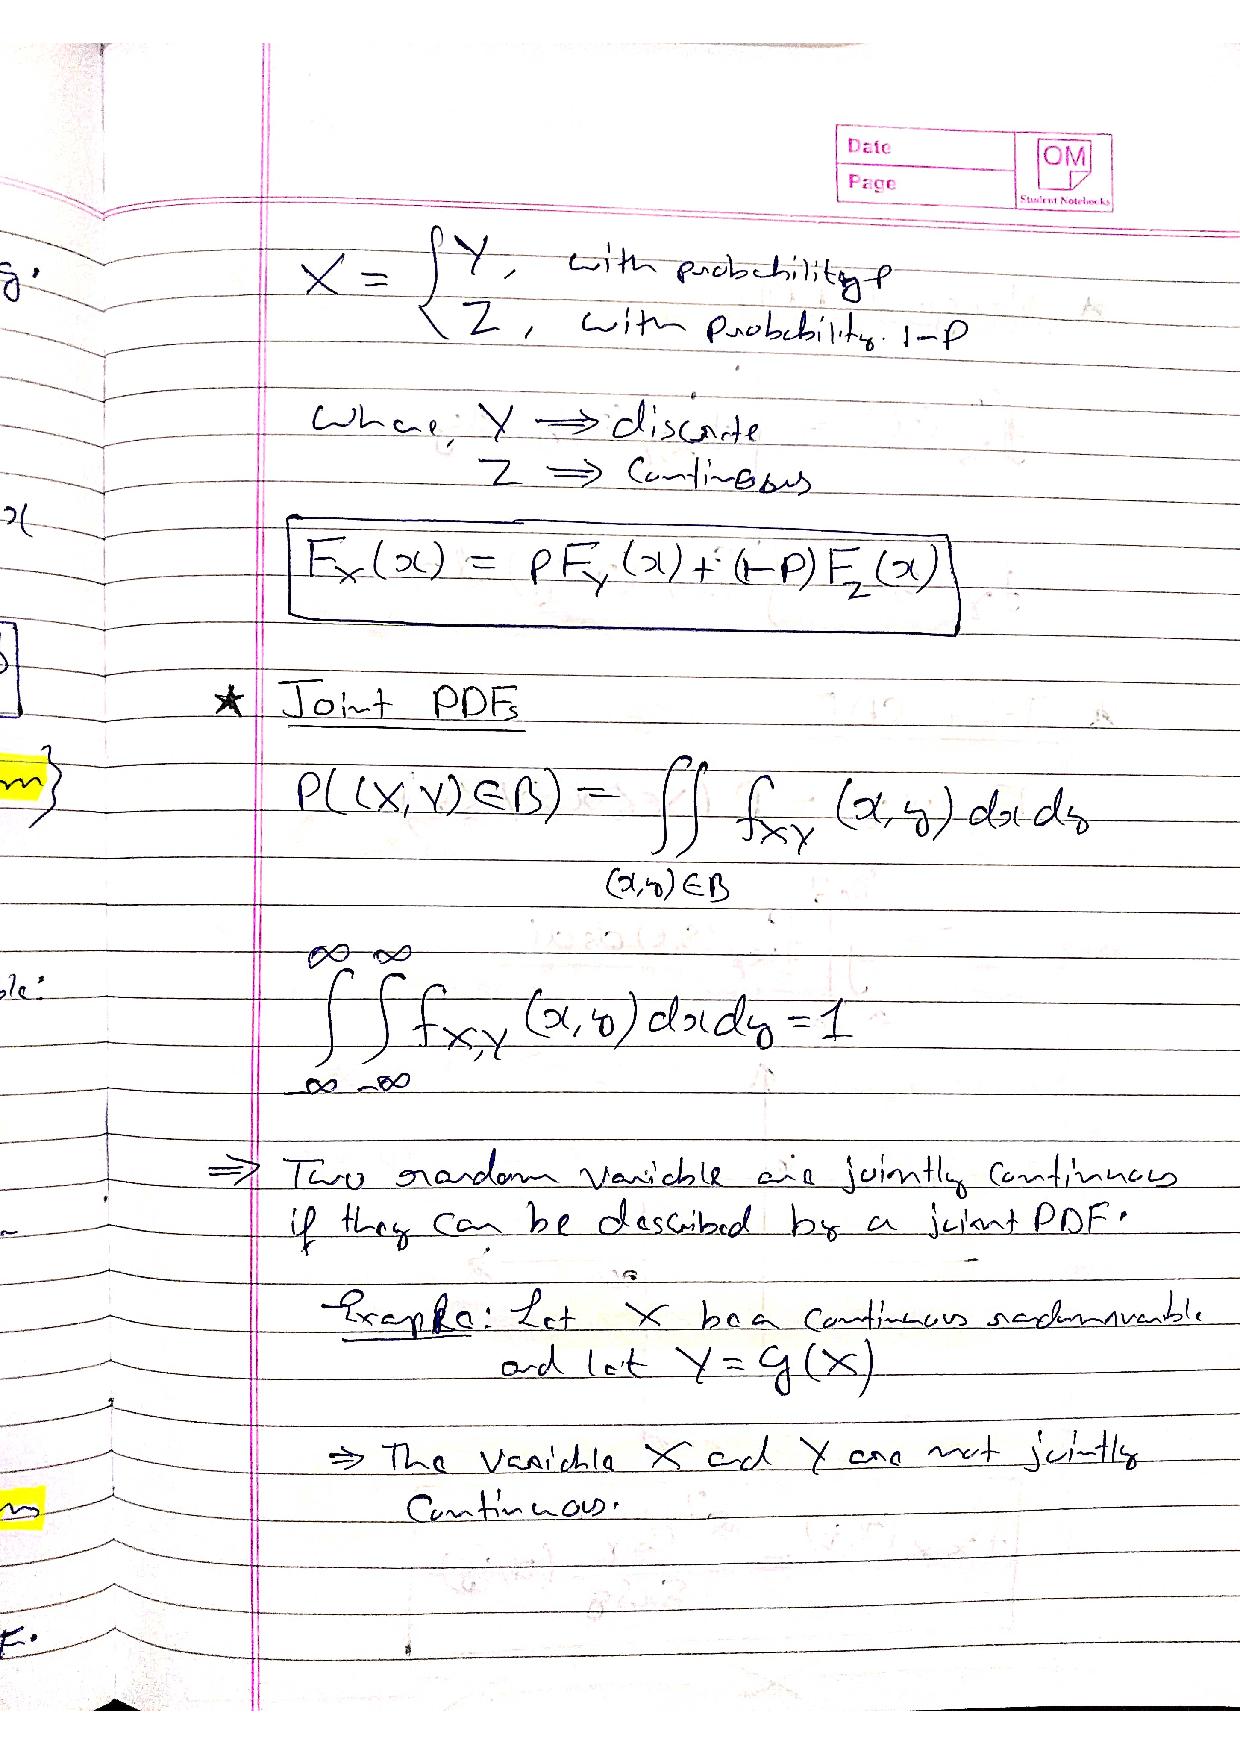 Date
Page
OM
Student Notebooks
y.
X = { Y, with probability p
Z, with probability 1-P
where, Y ⇒ discrete
Z ⇒ Continuous
x
F_X(x) = pF_Y(x) + (1-P)F_Z(x)
★ Joint PDFs
m}
P((X,Y)∈B) = ∬ f_XY (x,y) dx dy
(x,y)∈B
∞ ∞
ble:
∫ ∫ f_X,Y (x,y) dx dy = 1
-∞ -∞
⇒ Two random variable are jointly continuous
if they can be described by a joint PDF.
Example: Let X be a continuous random variable
and let Y = g(X)
⇒ The variable X and Y are not jointly
Continuous.
F.